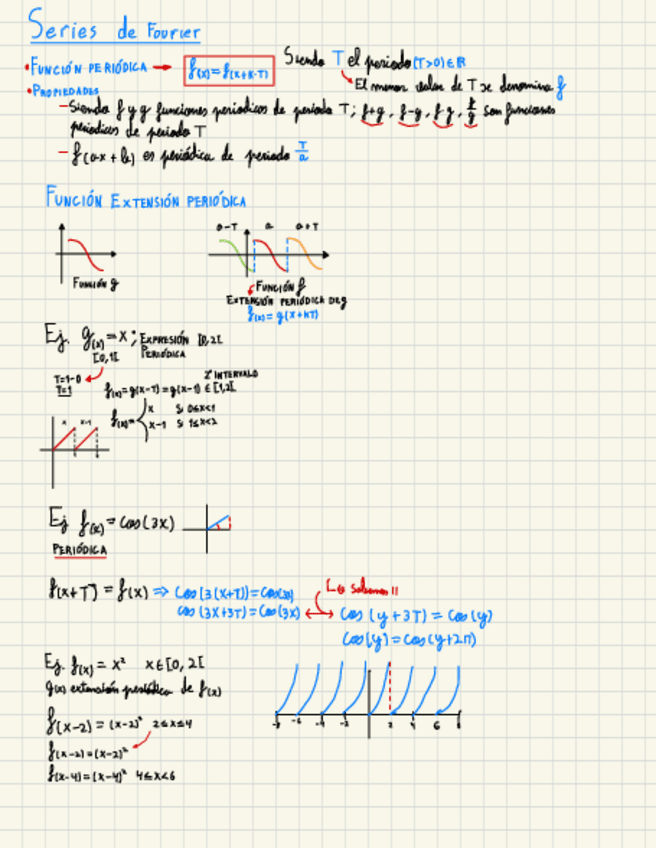 Series de Fourier
• FUNCIÓN PERIÓDICA → f(x)=f(x+k·T) Siendo T el periodo (T>0)∈ℝ
El menor valor de T se denomina f
• PROPIEDADES
- Siendo f y g funciones periodicas de periodo T; f+g, f-g, f·g, f/g son funciones
periodicas de periodo T
- f(ax+b) es periódica de periodo T/a
FUNCIÓN EXTENSIÓN PERIÓDICA
a-T a a+T
FUNCIÓN g
FUNCIÓN f
EXTENSIÓN PERIÓDICA DE g
f(x) = g(x+kT)
Ej. g(x) = x ; EXPRESIÓN [0,2[
[0,1[ PERIÓDICA
T=1-0
T=1
2º INTERVALO
f(x)=g(x-T)=g(x-1) ∈ [1,2[
f(x)= { x si 0≤x<1
x-1 si 1≤x<2
x x-1
Ej f(x) = cos(3x)
PERIÓDICA
f(x+T) = f(x) ⇒ cos(3(x+T))=cos(3x)
Lo sabemos !!
cos(3x+3T)=cos(3x) ↔ cos(y+3T) = cos(y)
cos(y)=cos(y+2π)
Ej. f(x) = x² x∈[0,2[
g(x) extensión periódica de f(x)
f(x-2) = (x-2)² 2≤x≤4
f(x-2)=(x-2)²
f(x-4)=(x-4)² 4≤x<6
-6 -4 -2 2 4 6 8